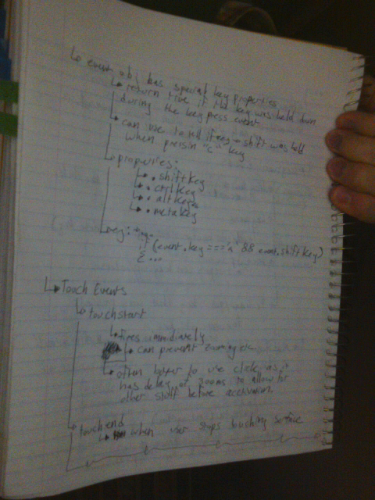 ↳ event obj has special key properties
↳ return true if the key was held down
during the key press event
↳ can use to id if eg - shift was held
when pressing "c" key
↳ properties:
↳ .shiftKey
↳ .ctrlKey
↳ .altKey
↳ .metaKey
↳ eg:
if (event.key === 'a' && event.shiftKey)
{ ...
↳ Touch Events
↳ touchstart
↳ fires immediately
↳ can prevent
↳ often better to use click, as it
has delay of to allow for
other stuff before
↳ touchend
↳ when user stops touching surface